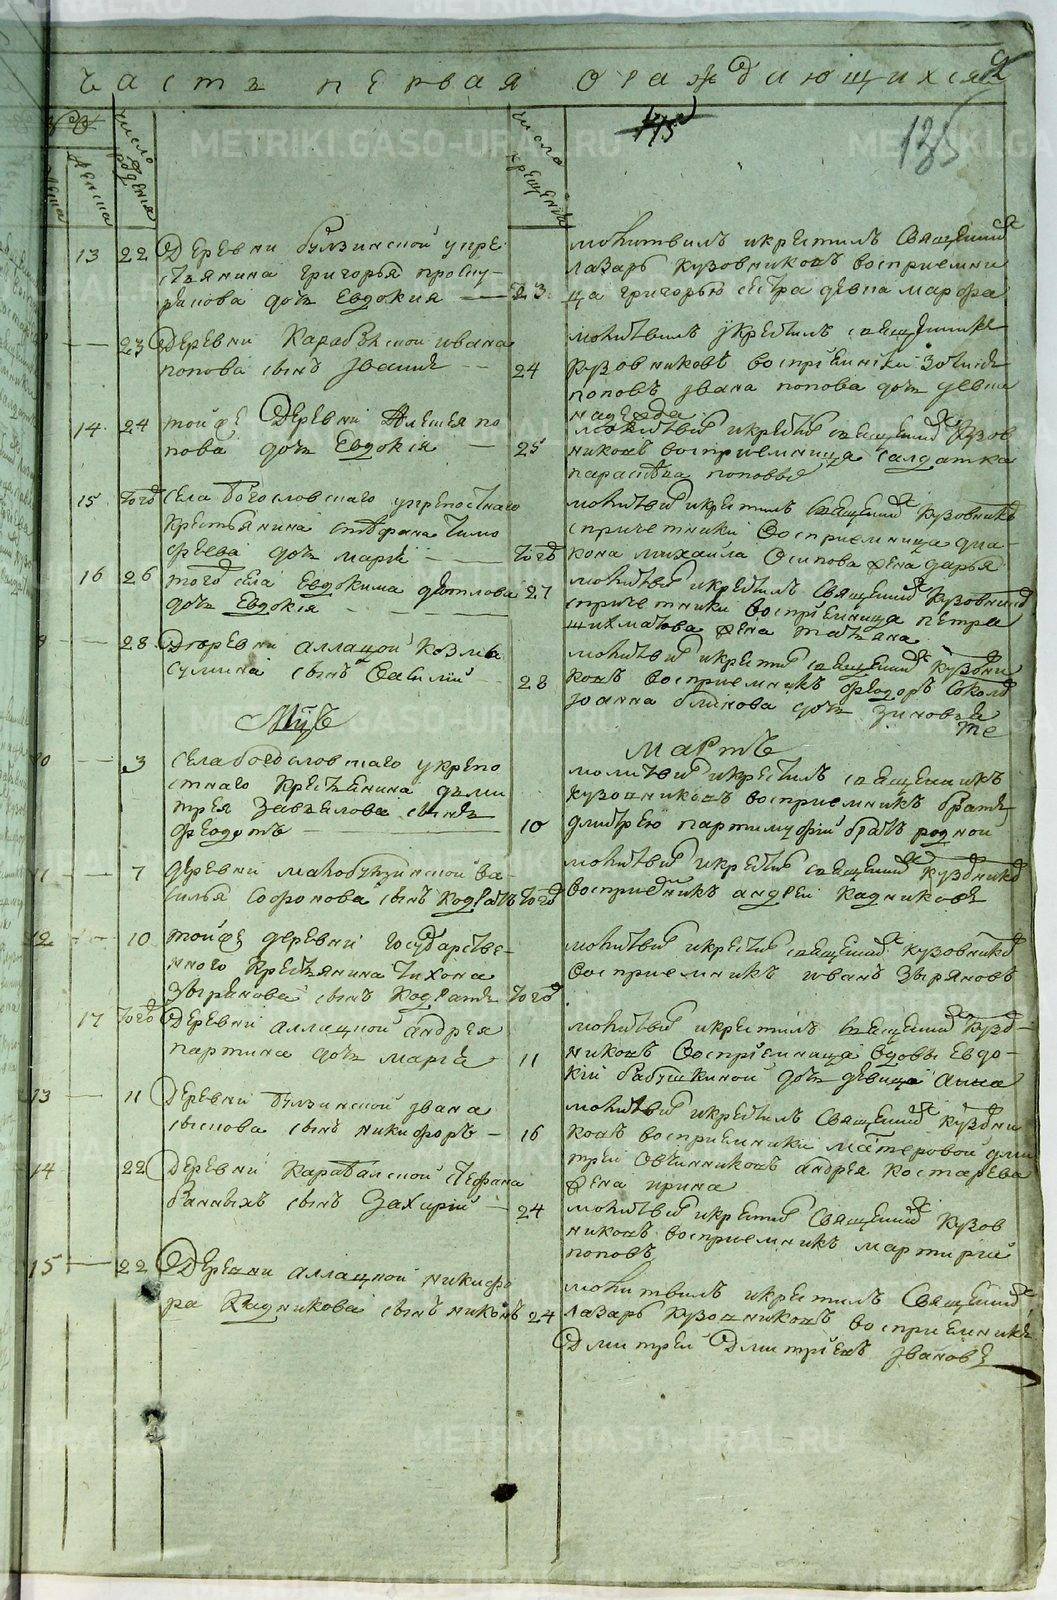 часть первая о раждающихся
135
число родения
число крещения
13 22 Деревни булзинской у кре-
стьянина григорья проску-
рякова дочь Евдокия 23
молитвилъ икрестилъ Священникъ
лазарь кузовниковъ восприемни
ца григорью сестра девка марфа
23 Деревни Карабольской ивана
попова сынъ Iванъ 24
молитвилъ iкрестилъ священникъ
кузовниковъ
поповъ Iвана попова дочь девка
надежда
14 24 той же Деревни Алексея по
пова дочь Евдокiя 25
молитвилъ икрестилъ священникъ Кузов
никовъ восприемница салдатка
параскева попова
15 того села богословскаго у крепостнаго
крестьянина стефана тимо
феева дочь марiя того
молитвилъ икрестилъ священникъ кузовниковъ
спричетники Восприемница диа-
кона михаила Осипова жена дарья
16 26 того села Евдокима
дочь Евдокiя 27
молитвилъ икрестилъ Священникъ Кузовниковъ
спричетники воспрiемница петра
жена татьяна
28 Деревни аллацкой козмы
сулина сынъ Василiй 28
молитвилъ икрестилъ священникъ кузовни
ковъ восприемникъ федоръ
Iоанна блинова дочь зиновья
Мартъ
3 села богословскаго у крепо
стнаго крестьянина дими
трея завьялова сынъ
феодотъ 10
молитвилъ икрестилъ священникъ
кузовниковъ восприемникъ братъ
дмитрею братъ родной
7 деревни малобулзинской ва-
силья софонова сынъ Кодратъ того
молитвилъ икрестилъ священникъ кузовниковъ
восприемникъ андреи кадниковъ
10 той же деревни государстве-
нного крестьянина тихона
зырянова сынъ Кодратъ того
молитвилъ икрестилъ священникъ кузовниковъ
восприемникъ иванъ зыряновъ
17 того Деревни аллацкой андрея
партина дочь марiя 11
молитвилъ икрестилъ священникъ кузо-
вниковъ Воспрiемница вдовы Евдо-
кiи бабушкиной дочь девица анна
13 11 Деревни булзинской Iвана
сынъ никифоръ 16
молитвилъ икрестилъ Священникъ кузовни
ковъ восприемники дми
трей овчинниковъ андрея костарева
жена ирина
14 22 Деревни Карабольской стефана
банныхъ сынъ Захарiй 24
молитвилъ икрестилъ Священникъ Кузов
никовъ восприемникъ мартирiй
поповъ
15 22 Деревни аллацкой никифо
ра Кадникова сынъ никонъ 24
молитвилъ икрестилъ Священникъ
лазарь кузовниковъ восприемникъ
Дмитрей Дмитрiевъ Iвановъ